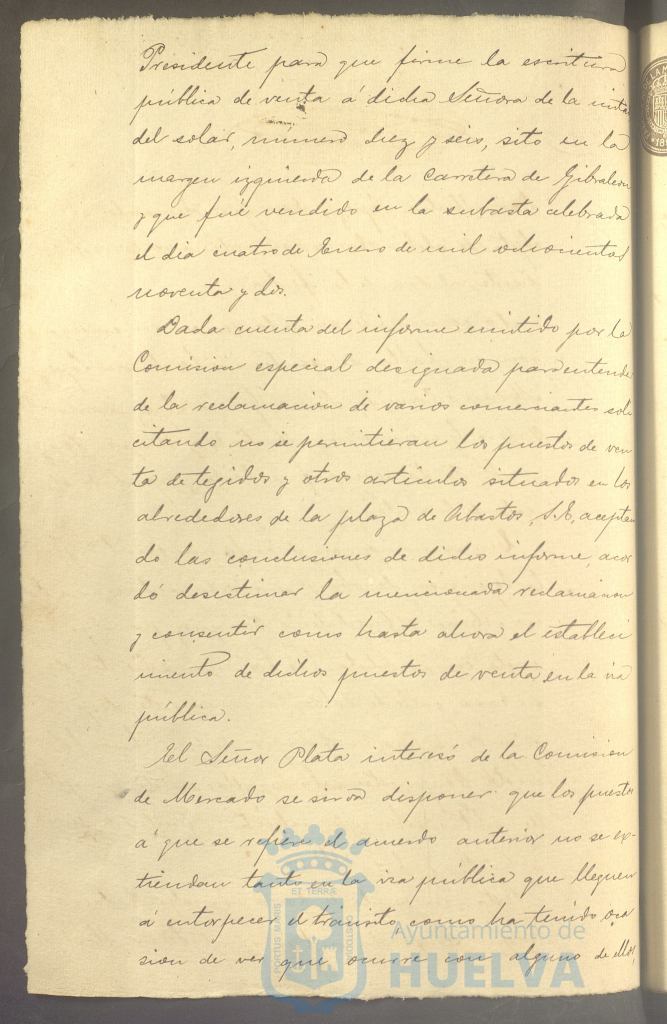 Presidente para que firme la escritura
pública de venta á dicha Señora de la mitad
del solar, número diez y seis, sito en la
margen izquierda de la Carretera de Gibraleon
y que fué vendido en la subasta celebrada
el dia cuatro de Enero de mil ochocientos
noventa y dos.
Dada cuenta del informe emitido por la
Comision especial designada para entender
de la reclamacion de varios comerciantes soli
citando no se permitieran los puestos de ven
ta de tegidos y otros artículos situados en los
alrededores de la plaza de Abastos, S.E. aceptan
do las conclusiones de dicho informe, acor
dó desestimar la mencionada reclamacion
y consentir como hasta ahora el estableci
miento de dichos puestos de venta en la via
pública.
El Señor Plata interesó de la Comision
de Mercado se sirva disponer que los puestos
á que se refiere el acuerdo anterior no se ex-
tiendan tanto en la via pública que lleguen
á entorpecer el tránsito, como ha tenido oca
sion de ver que ocurre con alguno de ellos,
PORTUS MARIS
ET TERRA
CUSTODIA
Ayuntamiento de
HUELVA